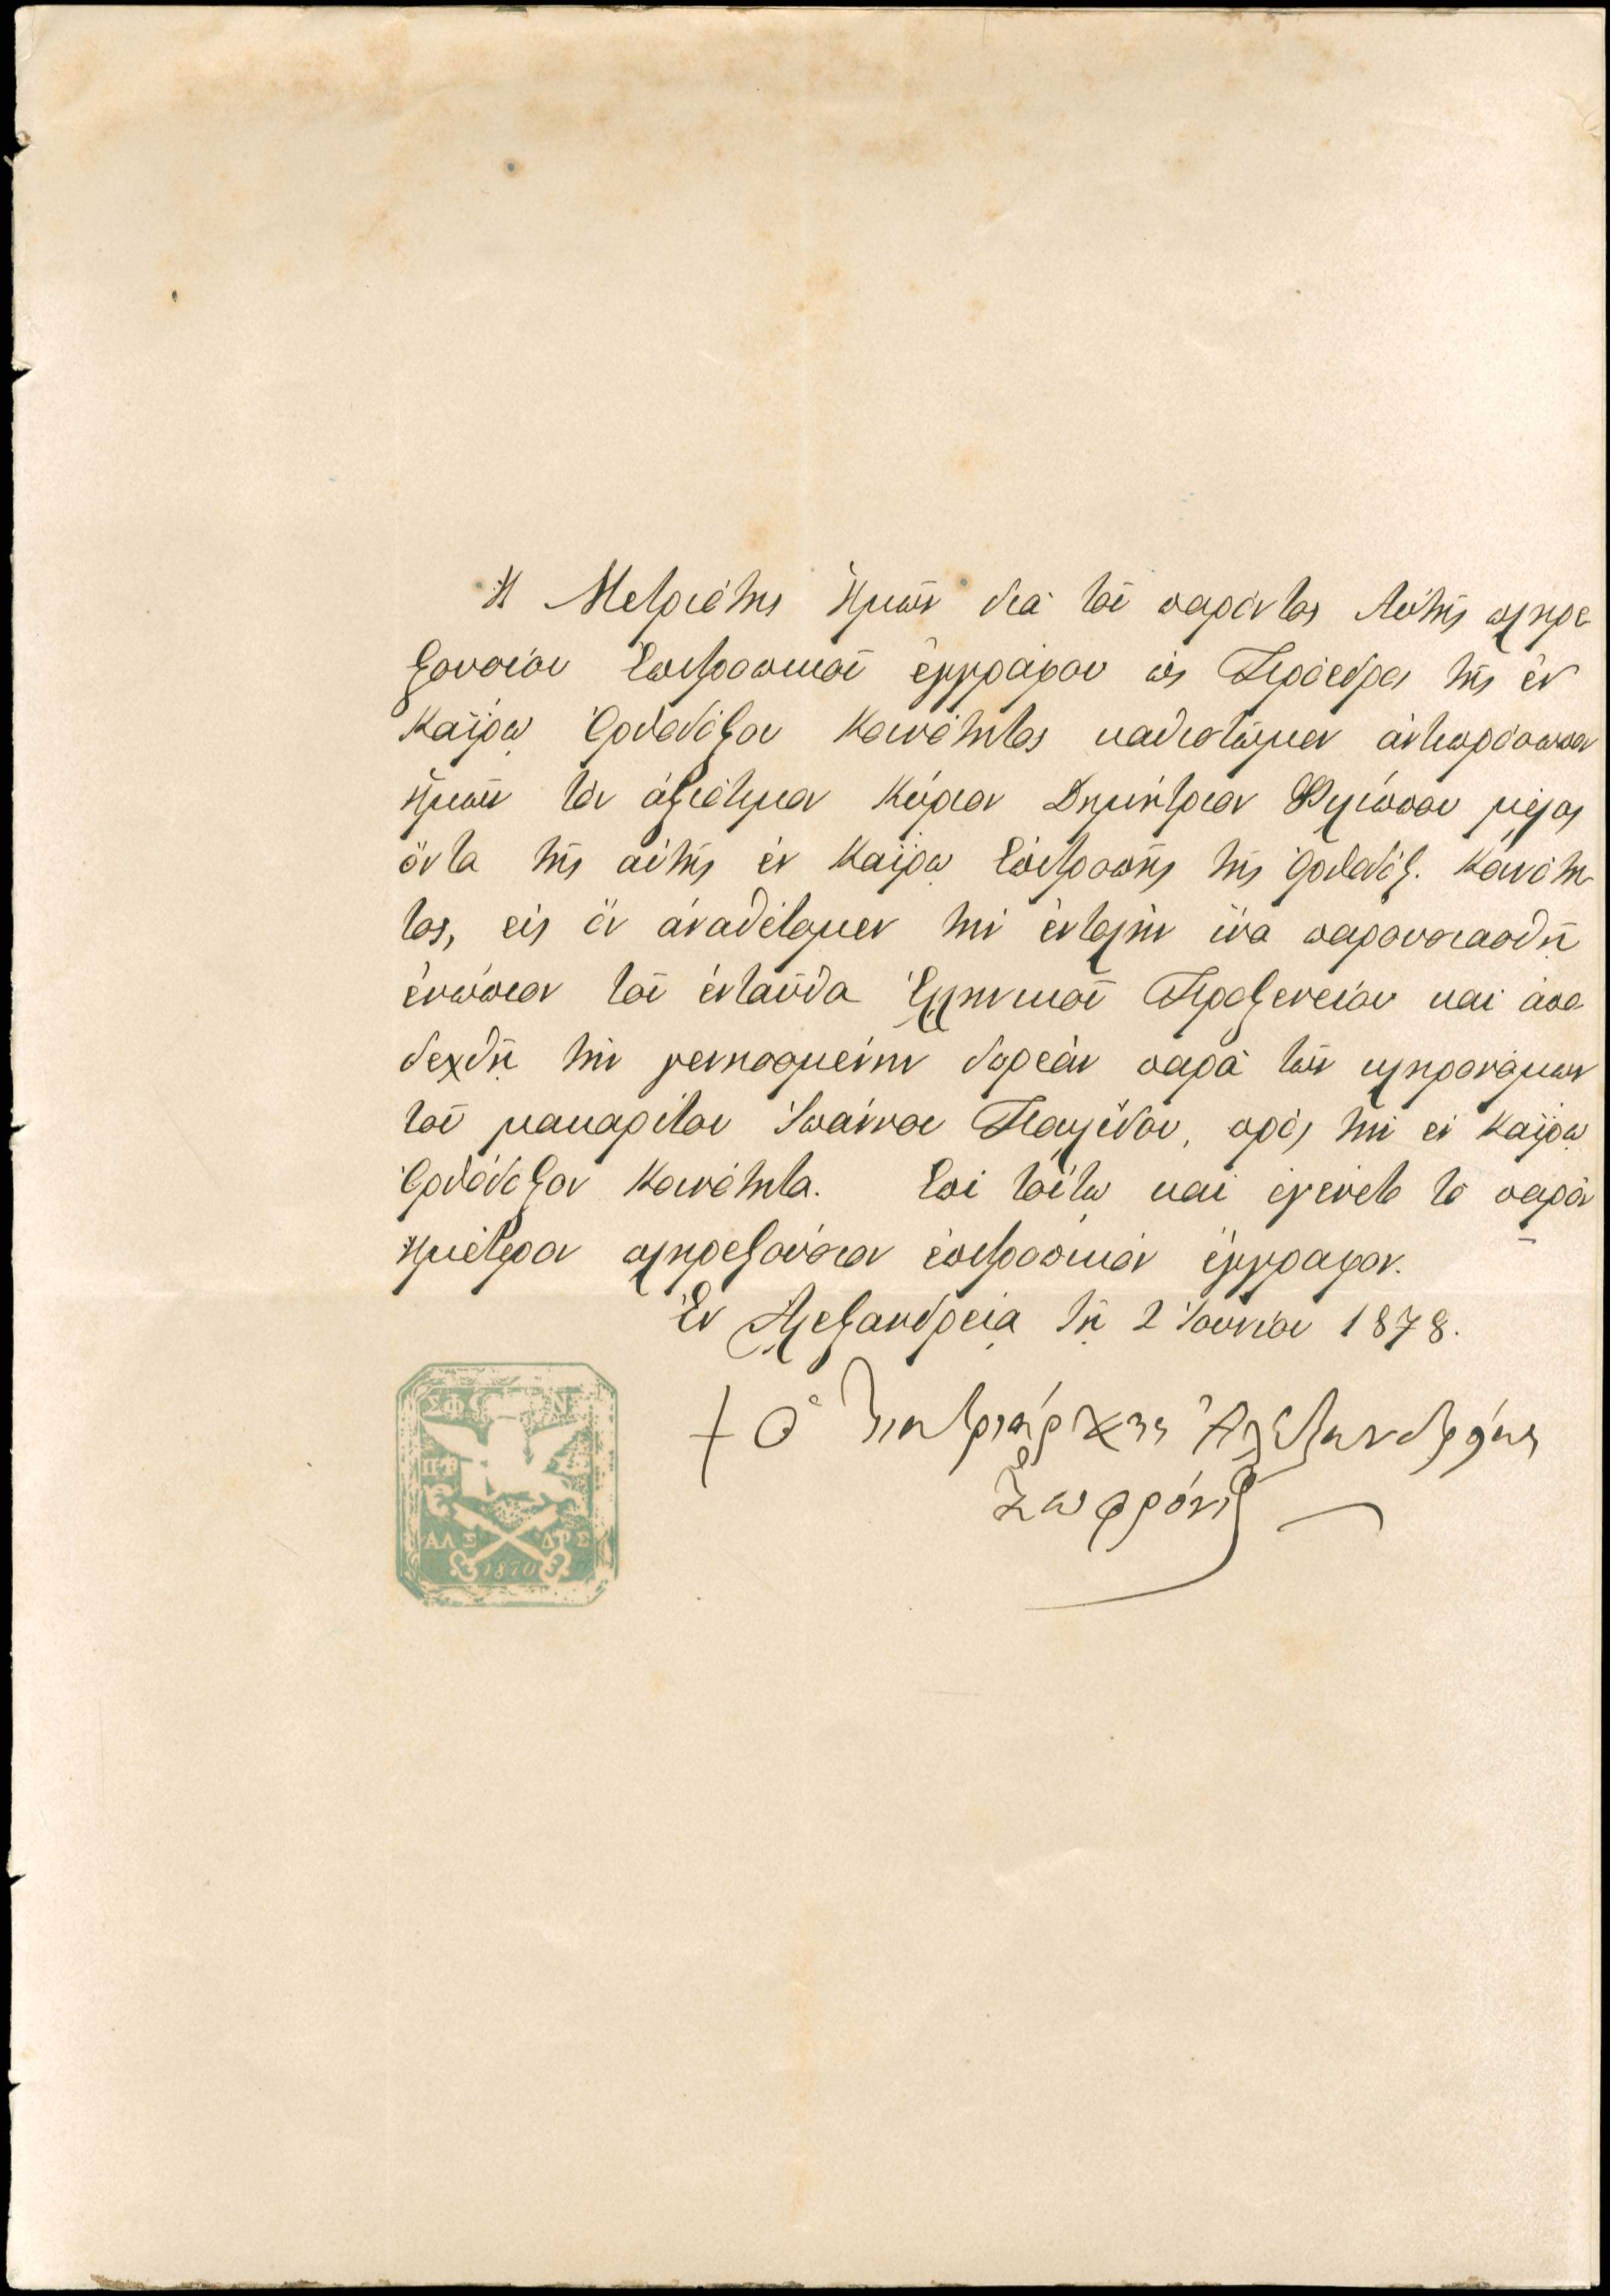 Ἡ Μετριότης Ἡμῶν διὰ τοῦ παρόντος Αὐτῆς πληρε
ξουσίου Ἐπιτροπικοῦ ἐγγράφου ὡς Πρόεδρος τῆς ἐν
Καΐρῳ Ὀρθοδόξου Κοινότητος καθιστῶμεν ἀντιπρόσωπον
ἡμῶν τὸν ἀξιότιμον Κύριον Δημήτριον Φιλίππου μέλος
ὄντα τῆς αὐτῆς ἐν Καΐρῳ Ἐπιτροπῆς τῆς Ὀρθοδόξ. Κοινότη
τος, εἰς ὃν ἀναθέτομεν τὴν ἐντολὴν ἵνα παρουσιασθῇ
ἐνώπιον τοῦ ἐνταῦθα Ἑλληνικοῦ Προξενείου καὶ ἀπο
δεχθῇ τὴν γεννησομένην δωρεὰν παρὰ τῶν κληρονόμων
τοῦ μακαρίτου Ἰωάννου, πρὸς τὴν ἐν Καΐρῳ
Ὀρθόδοξον Κοινότητα. Ἐπὶ τούτῳ καὶ ἐγένετο τὸ παρὸν
ἡμέτερον πληρεξούσιον ἐπιτροπικὸν ἔγγραφον.
Ἐν Ἀλεξανδρείᾳ τῇ 2 Ἰουνίου 1878.
† Ὁ Πατριάρχης Ἀλεξανδρείας
Σωφρόνιος
ΑΛΞ ΔΡΣ
1870